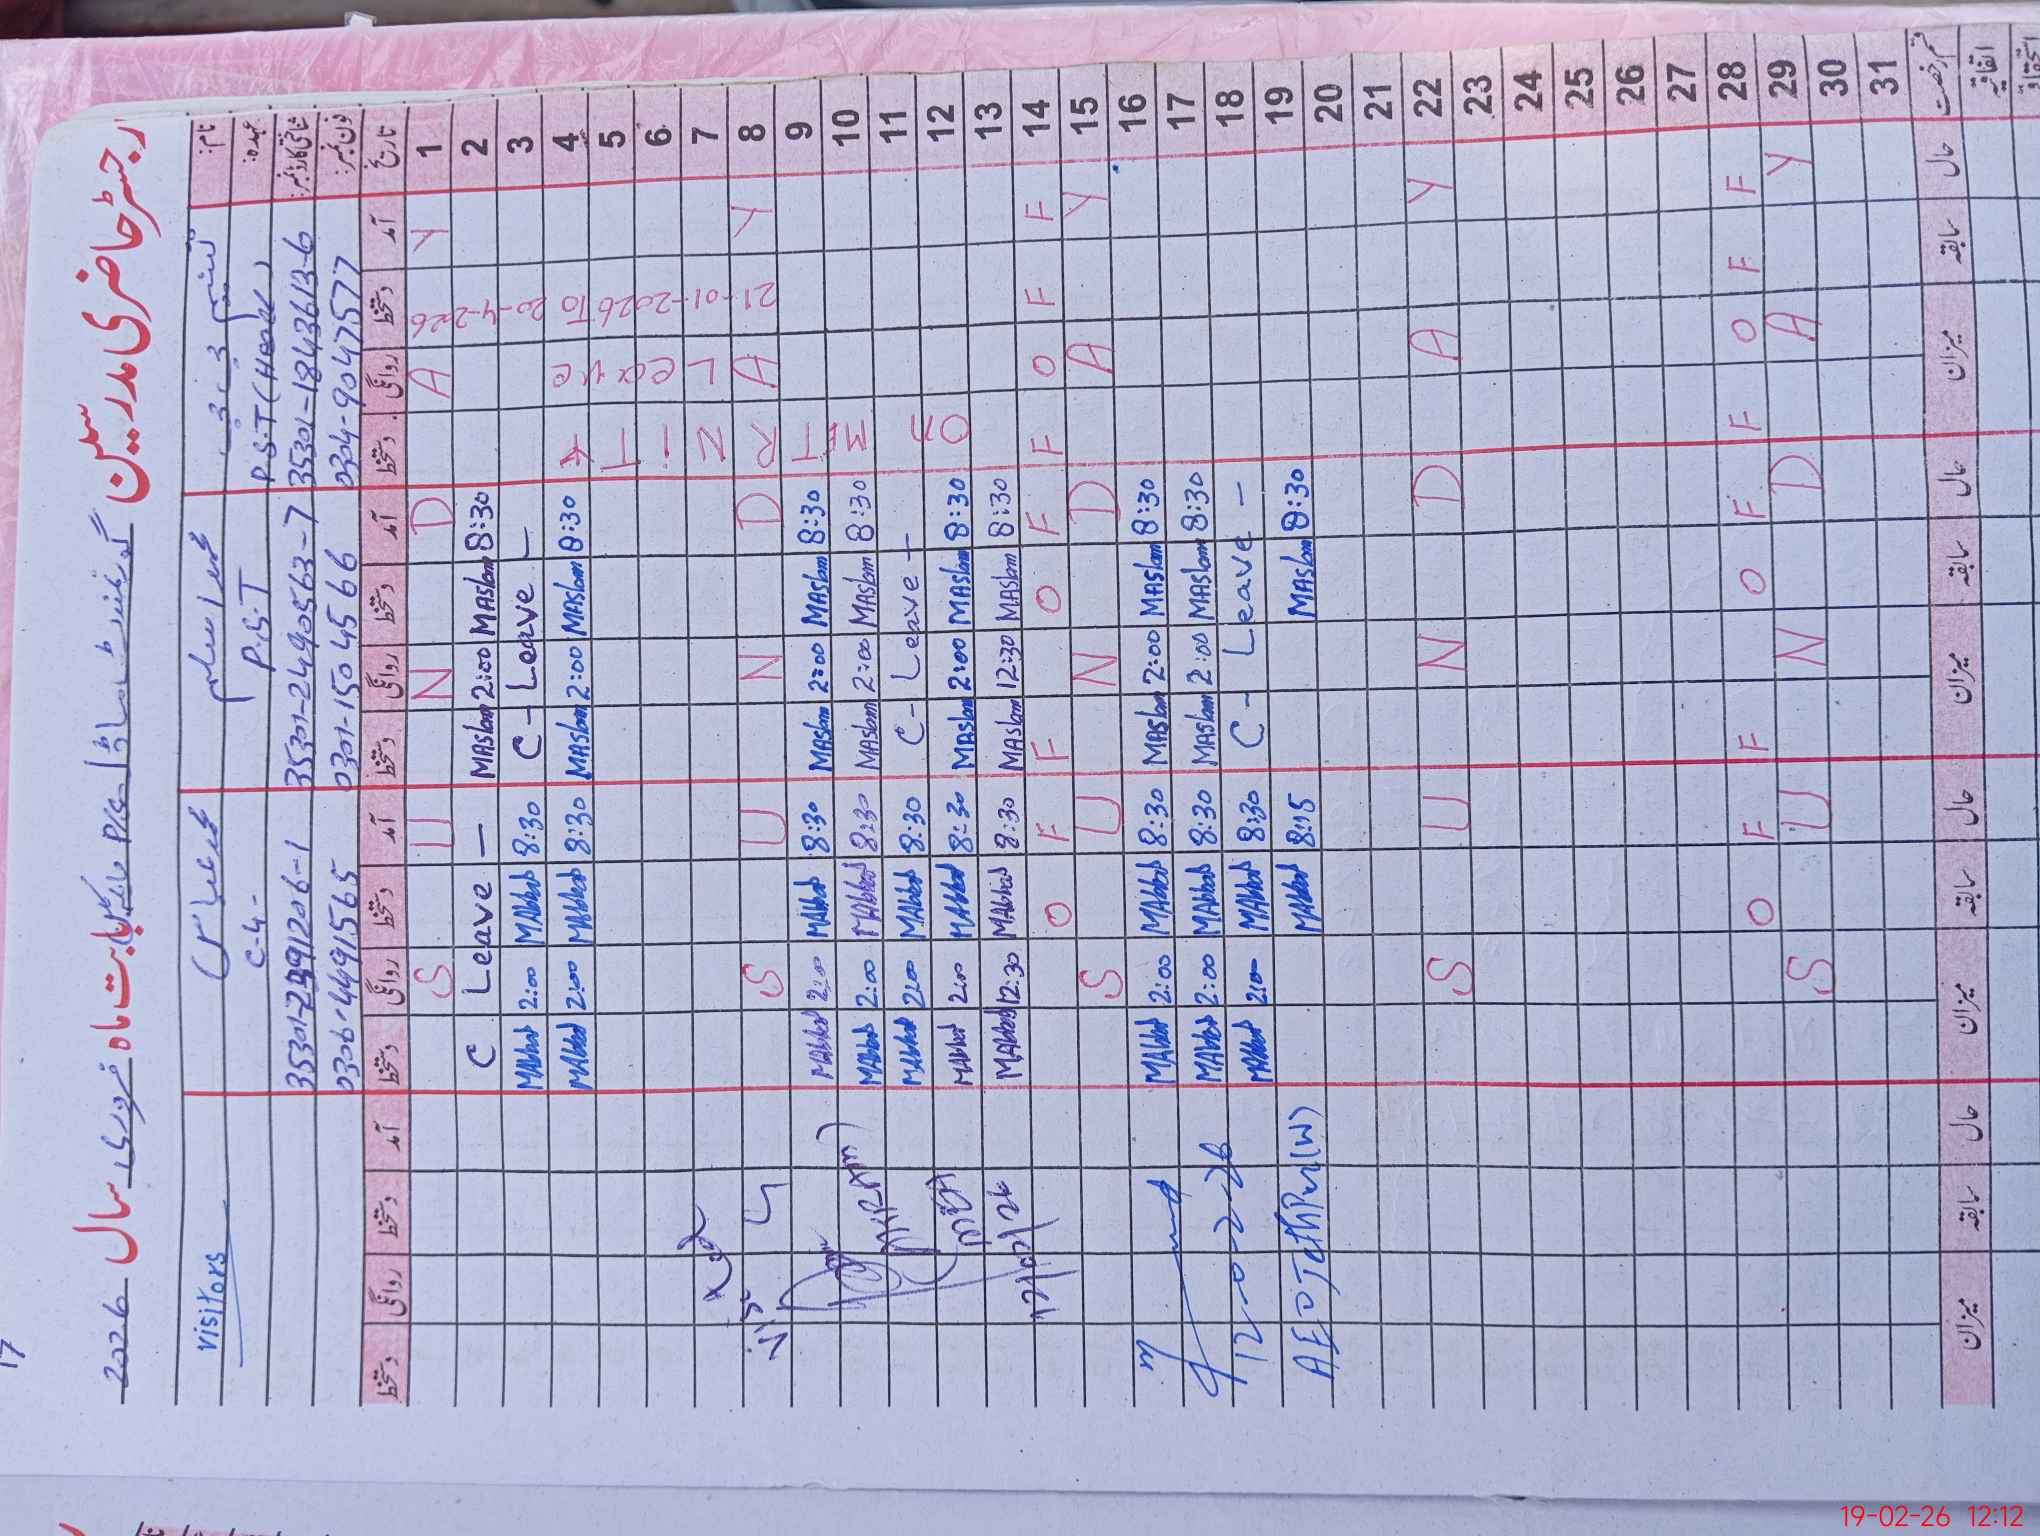 17
رجسٹر حاضری مدرسین گورنمنٹ
بابت ماہ فروری سال 2026
نام:
محمد اسلم
محمد عباس
visitors
عہدہ:
P.S.T (Head)
P.S.T
C-4-
شناختی کارڈ نمبر:
35301-1843613-6
35301-2490563-7
فون نمبر:
0304-9047577
0301-1504566
0306-4491565
تاریخ آمد دستخط روانگی دستخط آمد دستخط روانگی دستخط آمد دستخط روانگی دستخط آمد دستخط روانگی دستخط
1 Y A D N U S
2 8:30 MAslam 2:00 MAslam C Leave —
3 C - Leave - 8:30 MAbbas 2:00 MAbbas
4 8:30 MAslam 2:00 MAslam 8:30 MAbbas 2:00 MAbbas
5
6
7
8 Y A D N U S
9 8:30 MAslam 2:00 MAslam 8:30 MAbbas 2:00 MAbbas
10 8:30 MAslam 2:00 MAslam 8:30 MAbbas 2:00 MAbbas
11 C - Leave - 8:30 MAbbas 2:00 MAbbas
12 8:30 MAslam 2:00 MAslam 8:30 MAbbas 2:00 MAbbas
13 8:30 MAslam 12:30 MAslam 8:30 MAbbas 12:30 MAbbas
14 F F O F F O F F O
15 Y A D N U S
16 8:30 MAslam 2:00 MAslam 8:30 MAbbas 2:00 MAbbas
17 8:30 MAslam 2:00 MAslam 8:30 MAbbas 2:00 MAbbas
18 C - Leave - 8:30 MAbbas 2:00 MAbbas
19 8:30 MAslam 8:15 MAbbas
20
21
22 Y A D N U S
23
24
25
26
27
28 F F O F F O F F O
29 Y A D N U S
30
31
On METRNITY Leave
21-01-2026 To 20-4-2026
12-02-26
AEO Jeth Pur (W)
قسم رخصت حال سابقہ میزان حال سابقہ میزان حال سابقہ میزان حال سابقہ میزان
اتفاقیہ
19-02-26 12:12